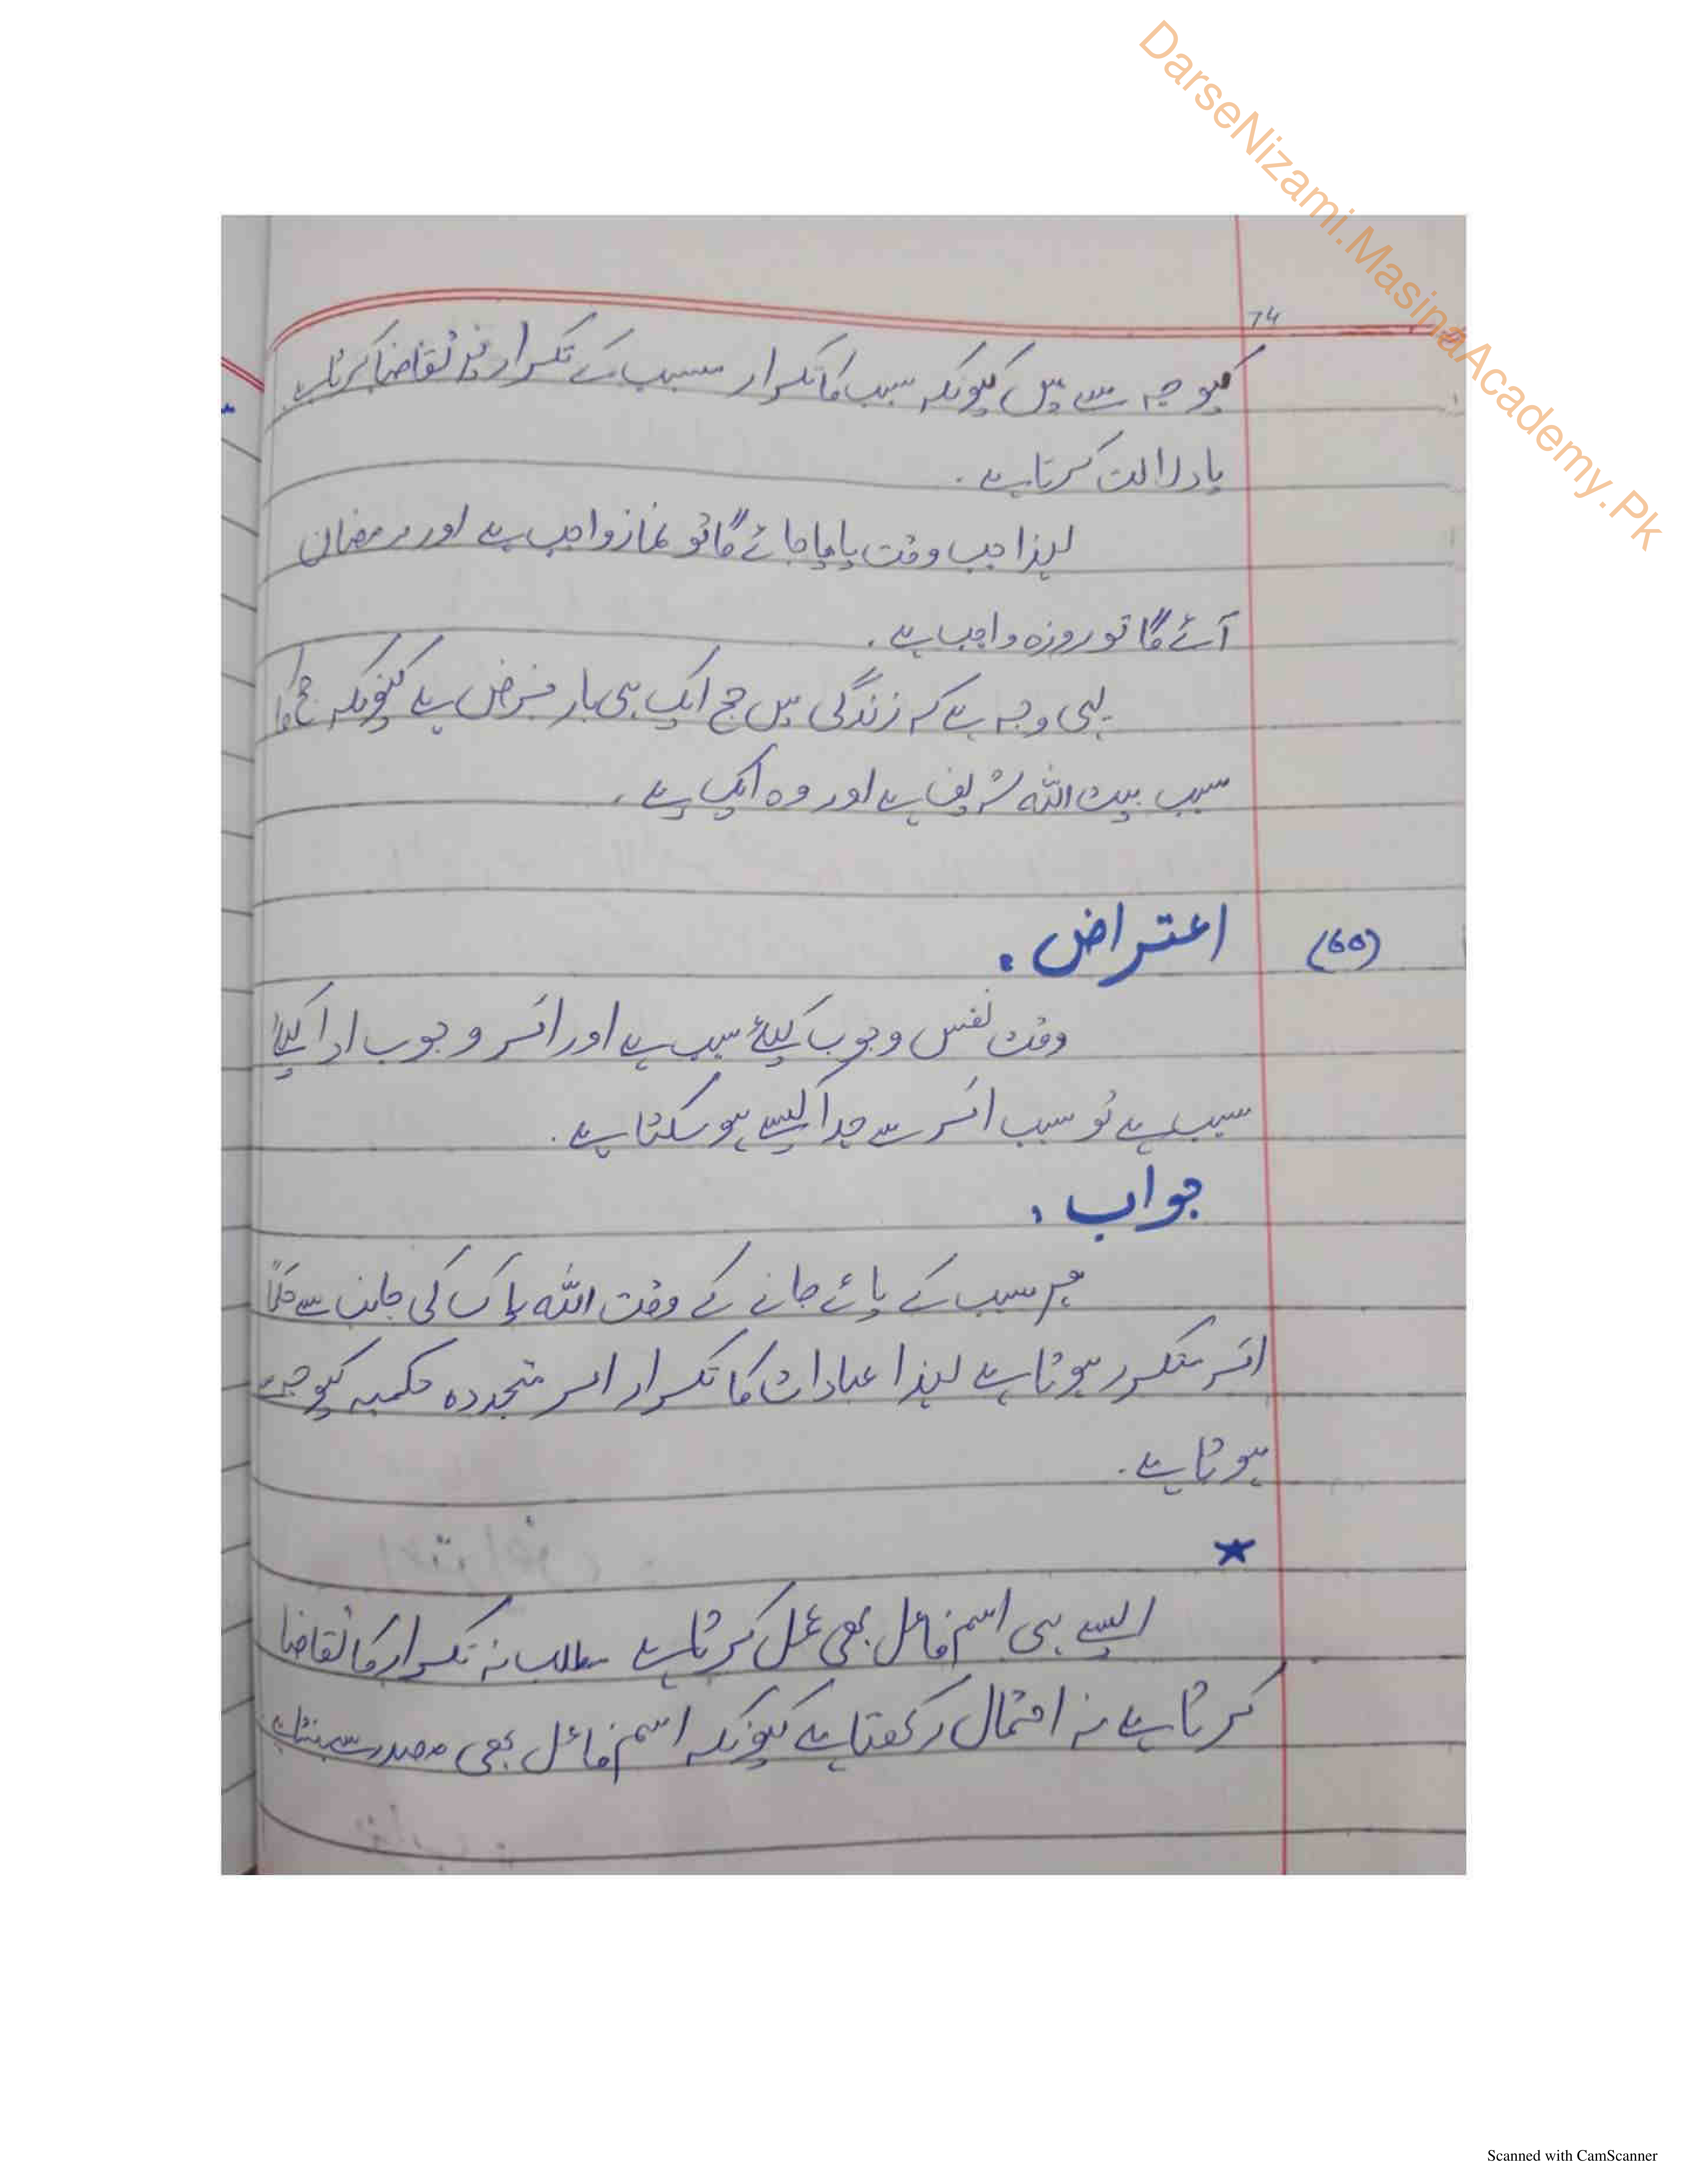 DarseNizami.MasinaAcademy.Pk
74
کیوجہ سے ہیں کیونکہ سبب کا تکرار مسبب کے تکرار پر تقاضا کرتا ہے
یا دلالت کرتا ہے .
لہذا جب وقت پایا جائے گا تو نماز واجب ہے اور رمضان
آئے گا تو روزہ واجب ہے .
یہی وجہ ہے کہ زندگی میں حج ایک ہی بار فرض ہے کیونکہ حج کا
سبب بیت اللہ شریف ہے اور وہ ایک ہے .
(60) اعتراض .
وقت نفس وجوب کیلئے سبب ہے اور امر وجوب ادا کیلئے
سبب ہے تو سبب امر سے جدا کیسے ہو سکتا ہے .
جواب .
ہر سبب کے پائے جانے کے وقت اللہ پاک کی جانب سے حکماً
امر متکرر ہوتا ہے لہذا عبادات کا تکرار امر متجددہ حکمیہ کیوجہ سے
ہوتا ہے .
★
ایسے ہی اسم فاعل بھی عمل کرتا ہے مطلب نہ تکرار کا تقاضا
کرتا ہے نہ احتمال رکھتا ہے کیونکہ اسم فاعل بھی مصدر سے بنتا ہے
Scanned with CamScanner